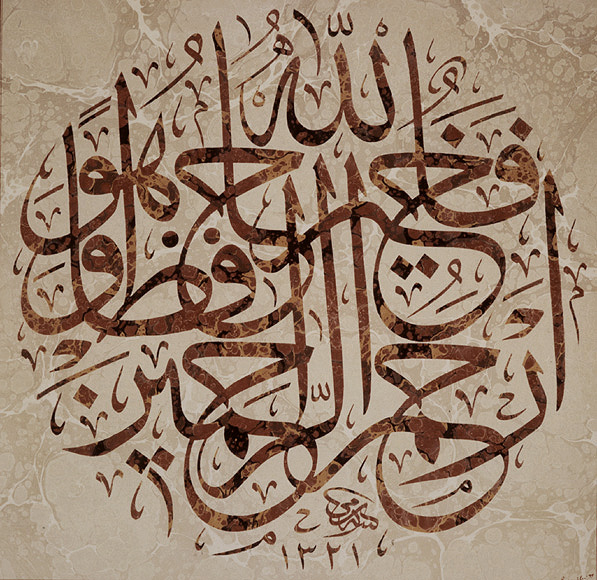 فالله خير حافظا وهو ارحم الراحمين
١٣٢١